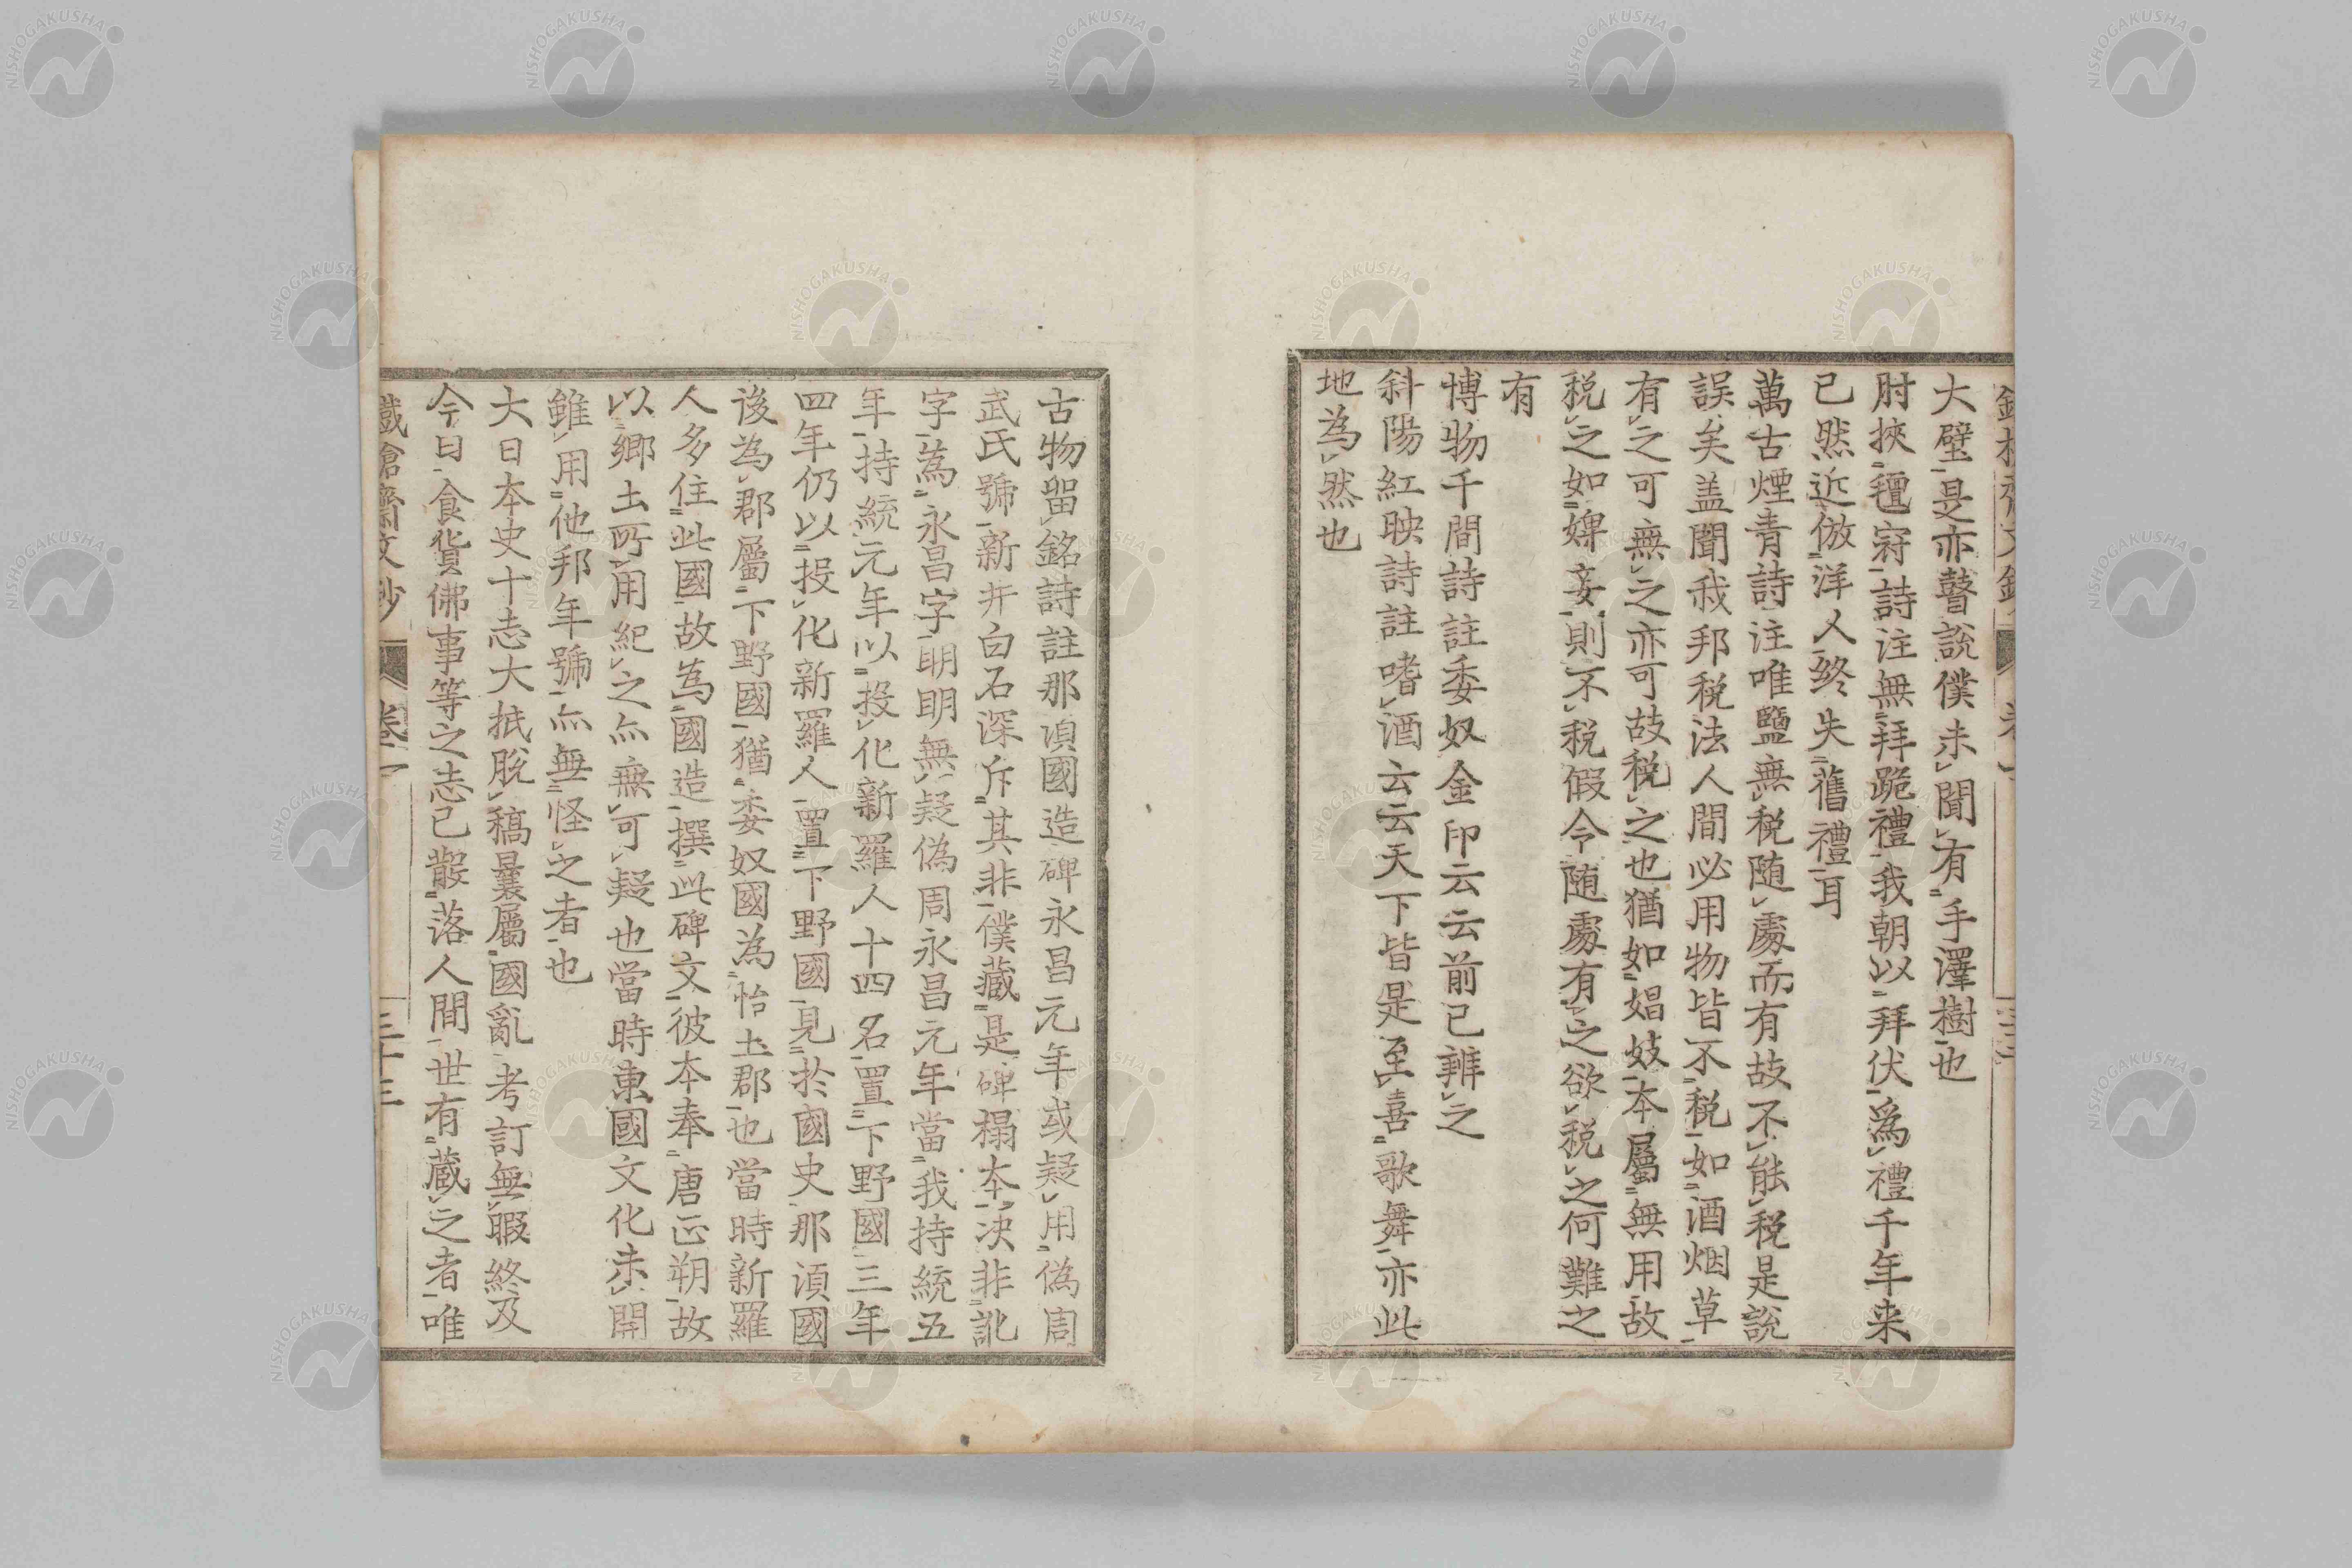 大璧是亦瞽說僕未聞有手澤樹也
肘挾氊窄詩注無拜跪禮我朝以拜伏爲禮千年来
已然近倣洋人終失舊禮耳
萬古煙青詩注唯鹽無税随處而有故不能税是説
誤矣盖聞我邦税法人間必用物皆不税如酒烟草
有之可無之亦可故税之也猶如娼妓本屬無用故
税之如婢妾則不税假令随處有之欲税之何難之
有
博物千間詩註委奴金印云云前已辨之
斜陽紅映詩註嗜酒云云天下皆是至喜歌舞亦此
地為然也
古物留銘詩註那湏國造碑永昌元年或疑用偽周
武氏號新井白石深斥其非僕藏是碑榻本决非訛
字為永昌字明明無疑偽周永昌元年當我持統五
年持統元年以投化新羅人十四名置下野國三年
四年仍以投化新羅人置下野國見於國史那湏國
後為郡屬下野國猶委奴國為怡土郡也當時新羅
人多住此國故為國造撰此碑文彼本奉唐正朔故
以鄉土所用紀之亦無可疑也當時東國文化未開
雖用他邦年號亦無怪之者也
大日本史十志大抵脫稿曩屬國亂考訂無暇終及
今日食貨佛事等之志已散落人間世有蔵之者唯
鐵槍齋文鈔 卷二 三十三